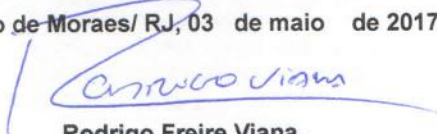 o de Moraes/ RJ, 03 de maio de 2017
Rodrigo Viana
Rodrigo Freire Viana